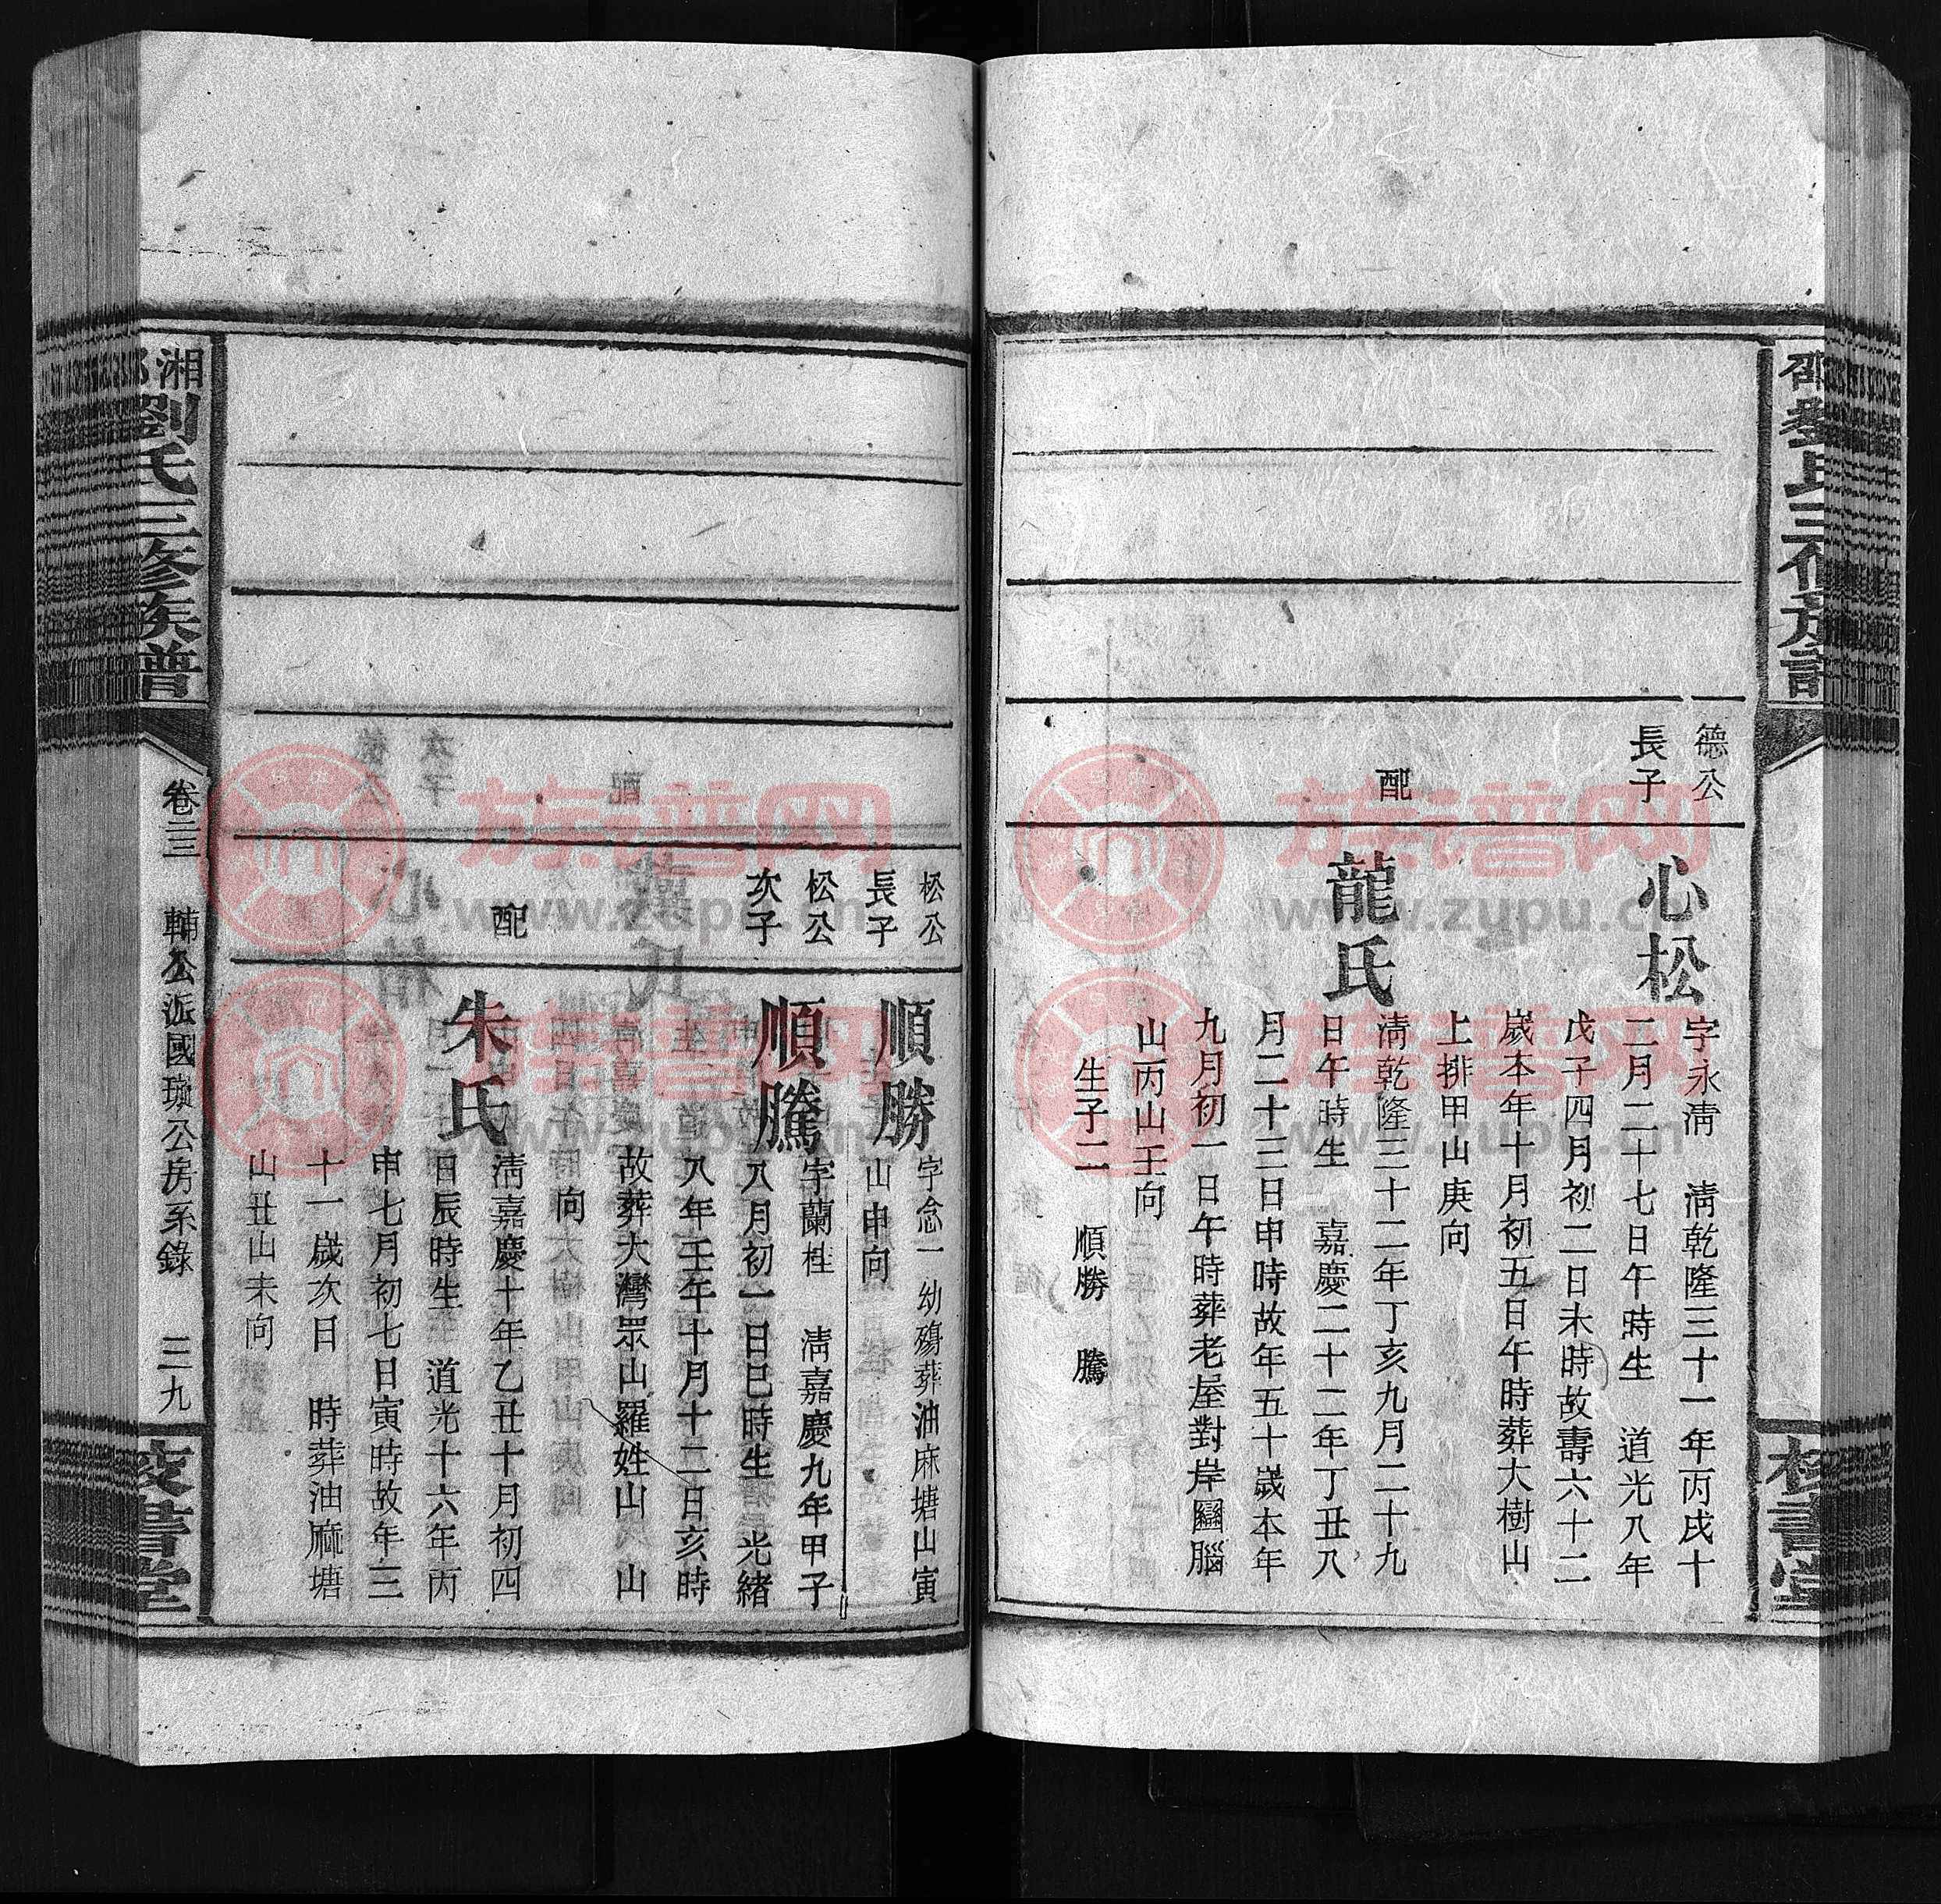 德公
長子
心松
字永淸　淸乾隆三十一年丙戌十
二月二十七日午時生　道光八年
戊子四月初二日未時故壽六十二
歲本年十月初五日午時葬大樹山
上排甲山庚向
配
龍氏
淸乾隆三十二年丁亥九月二十九
日午時生　嘉慶二十二年丁丑八
月二十三日申時故年五十歲本年
九月初一日午時葬老屋對岸圞腦
山丙山壬向
生子二　順勝　騰
松公
長子
順勝
字念一幼殤葬油麻塘山寅
山申向
松公
次子
順騰
字蘭桂　淸嘉慶九年甲子
八月初一日巳時生　光緒
八年壬午十月十二日亥時
故葬大灣眾山羅姓山　山
向
配
朱氏
淸嘉慶十年乙丑十月初四
日辰時生　道光十六年丙
申七月初七日寅時故年三
十一歲次日　時葬油麻塘
山丑山未向
湘
劉氏三修族譜
卷三三　輔公派國璵公房系錄　三九
校書堂
族谱网
www.zupu.cn
族谱网
www.zupu.cn
族谱网
www.zupu.cn
族谱网
www.zupu.cn